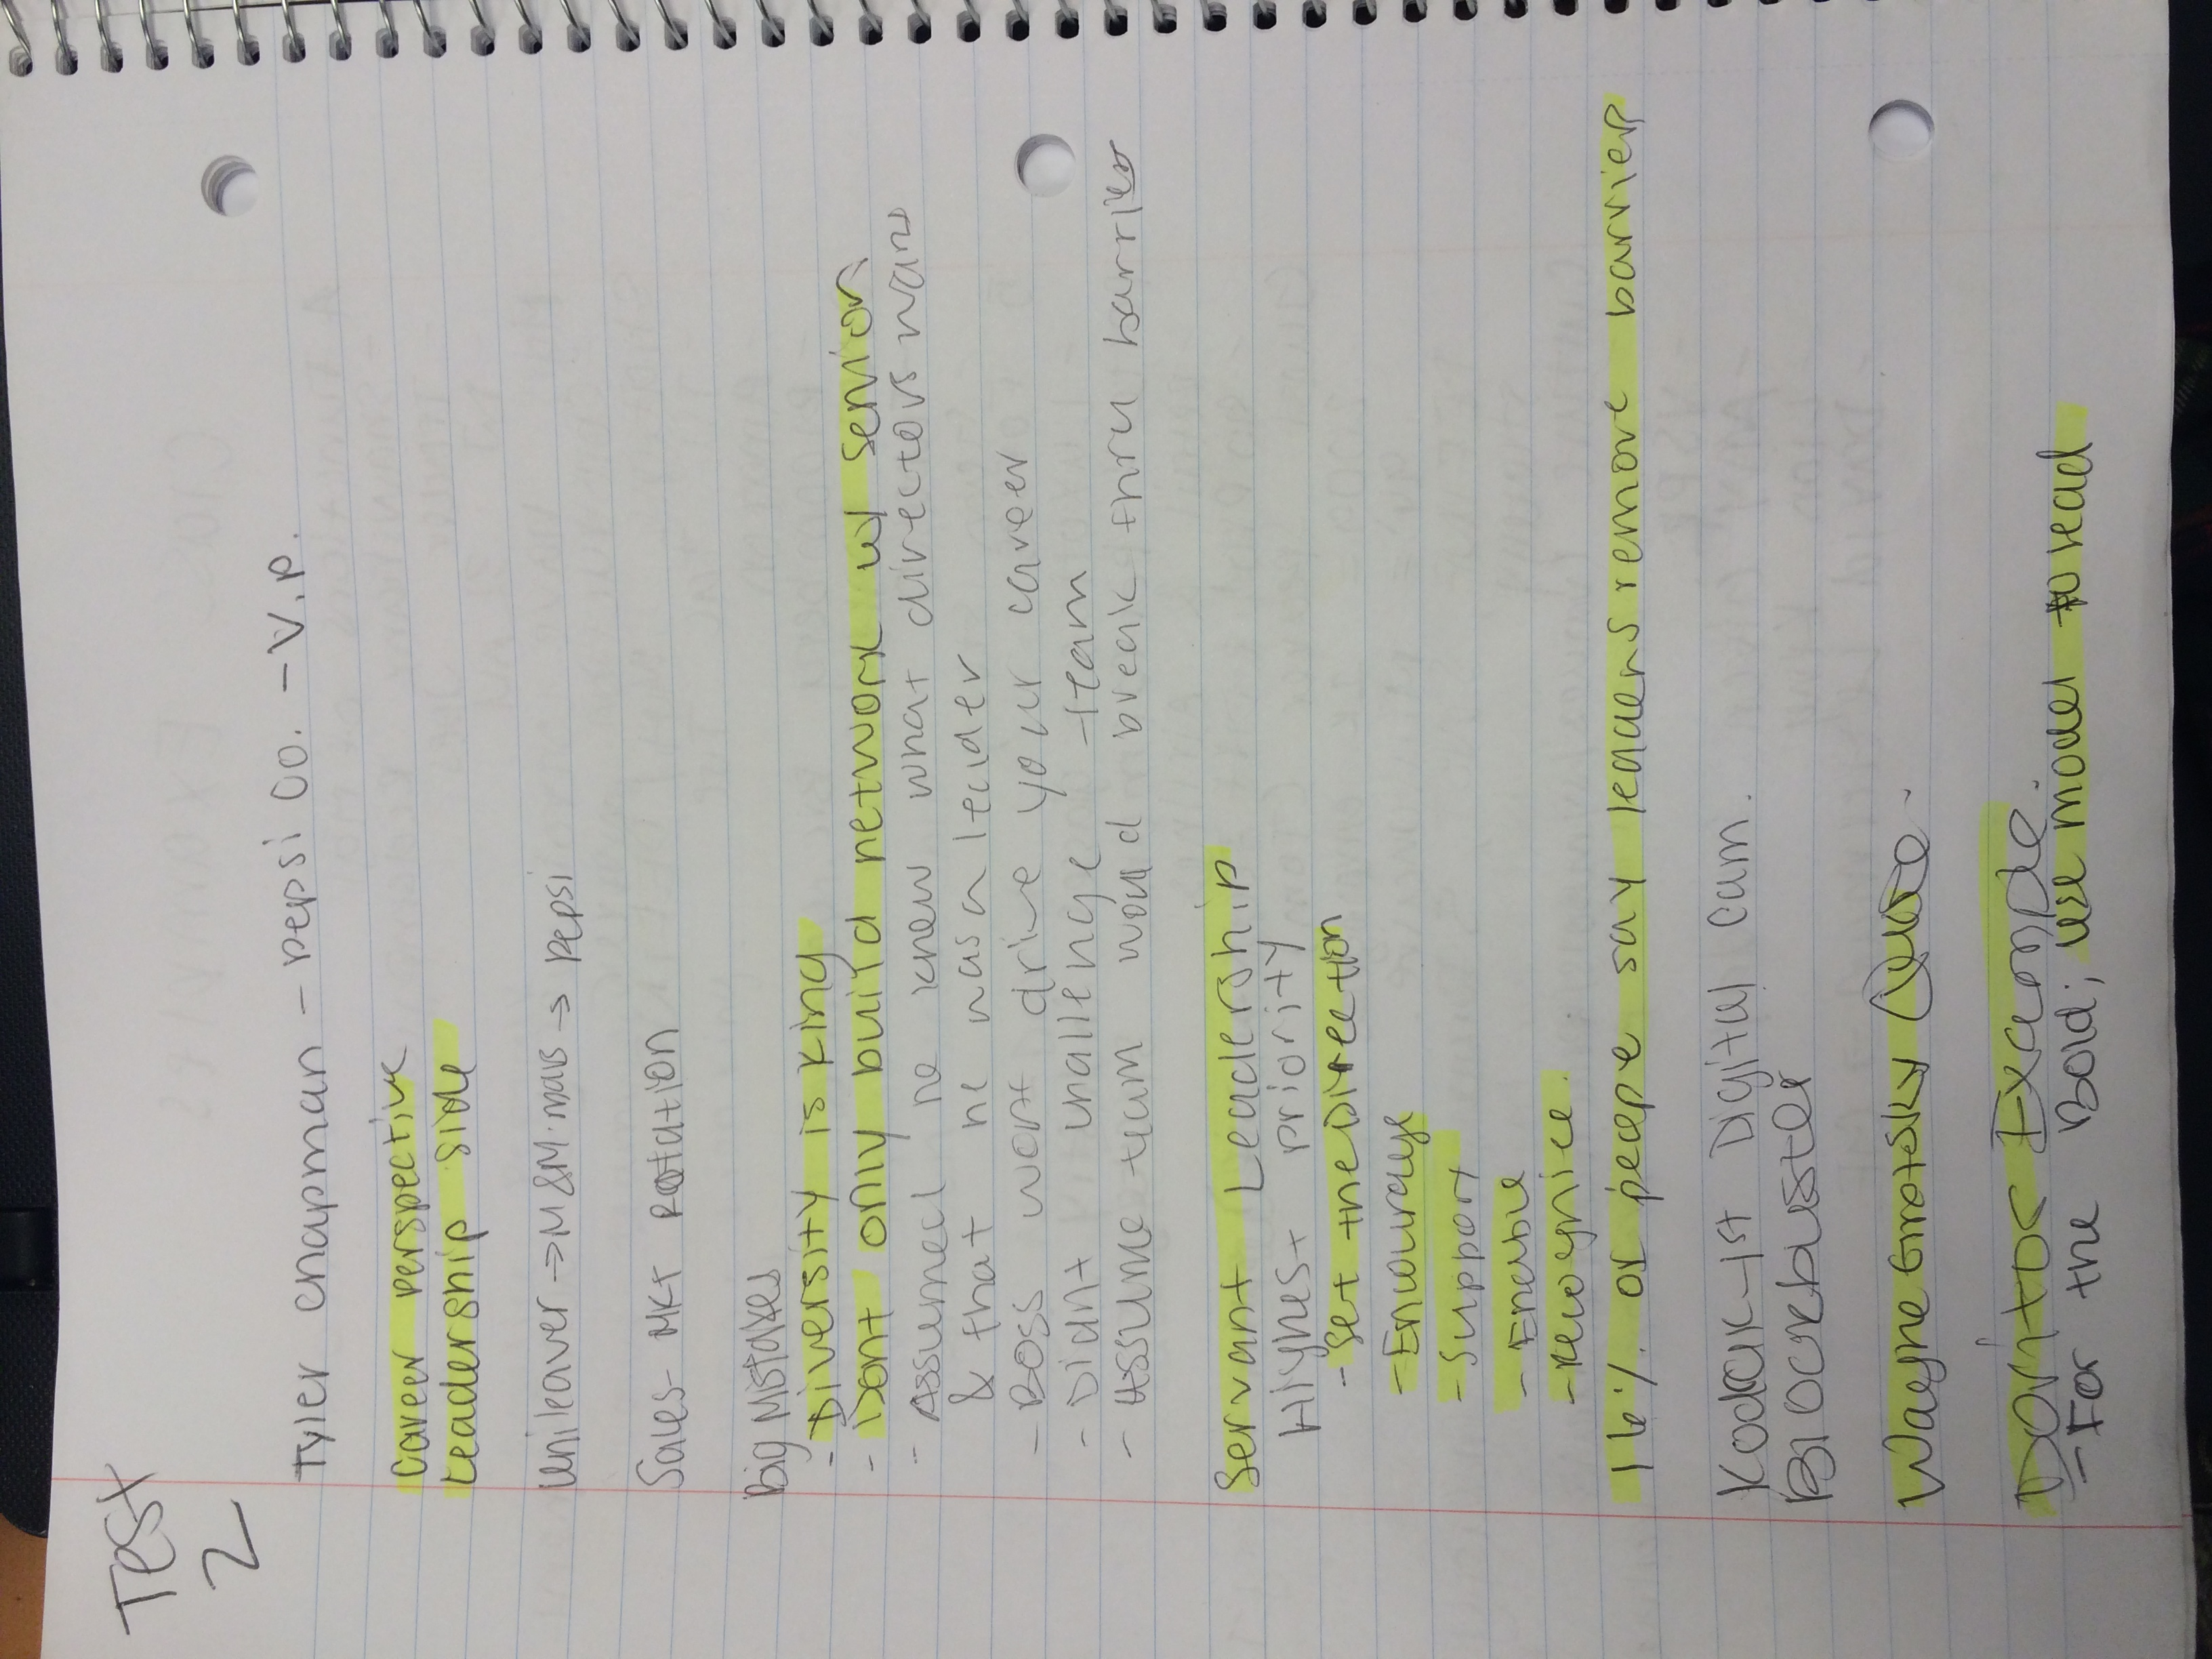 Test
2
Tyler Chapman - Pepsi Co. - V.P.
Career perspective
Leadership side
Unileaver → M&M. mars → Pepsi
Sales - MKT Rotation
Big Mistakes
- Diversity is king
- Dont only build network w/ senior
- Assumed he knew what directors want
& that he was a leader
- Boss wont drive your career
- Didnt challenge team
- Assume team would break thru barriers
Servant Leadership
Highest priority
- Set the Direction
- Encourage
- Support
- Enable
- recognice.
16% of peope say leaders remove barriers
Kodak - 1st Digital cam.
Blockbuster
Wayne Gretsky Quote.
Doritos Example.
- For the Bold; use model to read